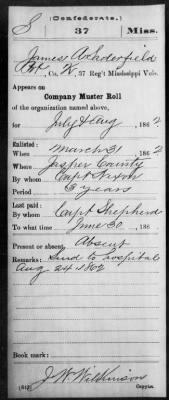 S
(Confederate.)
37 Miss.
James A
Pvt, Co. , 37 Reg't Mississippi Vols.
Appears on
Company Muster Roll
of the organization named above,
for July & Aug, 1862
Enlisted:
When March 31, 1862
Where Jasper County
By whom Capt Nixon
Period 3 years
Last paid:
By whom Capt Shepherd
To what time June 30, 186
Present or absent, Absent
Remarks: Send to hospital
Aug 24 1862
Book mark:
J. W. Wilkinson
(642) Copyist.